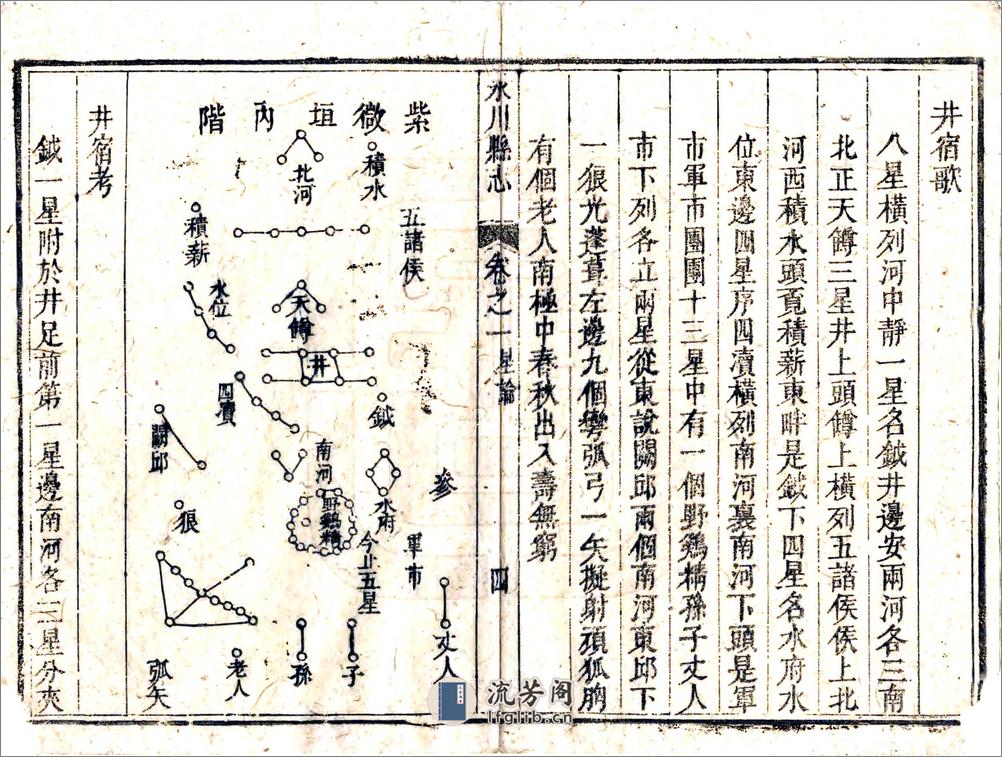 井宿歌
八星橫列河中靜一星名鉞井邊安兩河各三南
北正天罇三星井上頭罇上橫列五諸侯侯上北
河西積水頭覓積薪東畔是鉞下四星名水府水
位東邊四星序四瀆橫列南河裏南河下頭是軍
市軍市團圓十三星中有一個野鷄精孫子丈人
市下列各立兩星從東說闕邱兩個南河東邱下
一狼光蓬茸左邊九個彎弧弓一矢擬射頑狐胸
有個老人南極中春秋出入壽無窮
永川縣志
卷之一
星論
四
紫微垣內階
積水
北河
五諸侯
積薪
水位
天罇
井
鉞
四瀆
闕邱
南河
水府
參
野鷄精
今止五星
軍市
狼
丈人
子
孫
老人
弧矢
井宿考
鉞一星附於井足前第一星邊南河各三星分夾
流芳阁
lfglib.cn